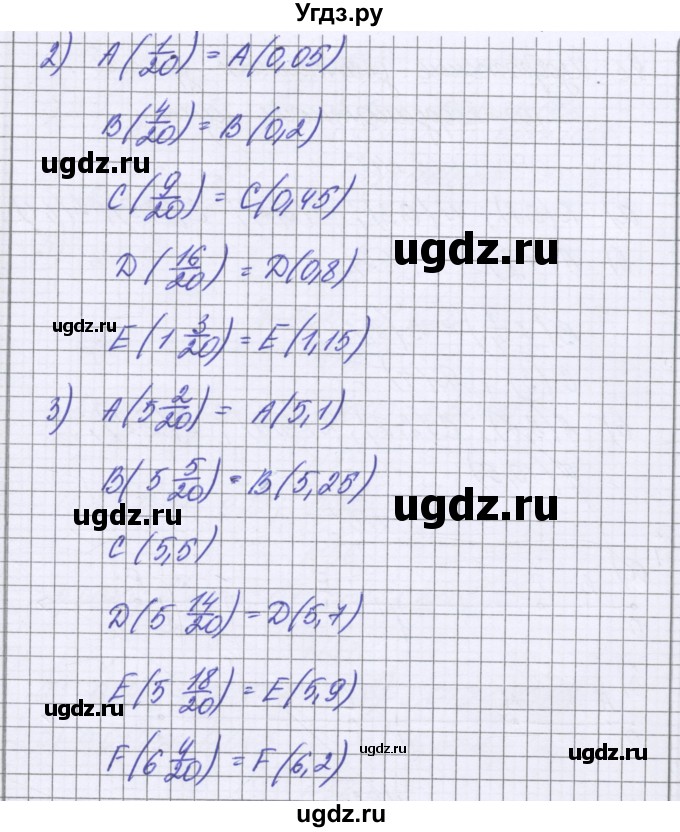 Угдз.ру
2) A(1/20) = A(0,05)
B(4/20) = B(0,2)
ugdz.ru
C(9/20) = C(0,45)
ugdz.ru
D(16/20) = D(0,8)
ugdz.ru
E(1 3/20) = E(1,15)
3) A(5 2/20) = A(5,1)
B(5 5/20) = B(5,25)
ugdz.ru
ugdz.ru
C(5,5)
D(5 14/20) = D(5,7)
E(5 18/20) = E(5,9)
ugdz.ru
F(6 4/20) = F(6,2)
ugdz.ru
ugdz.ru
ugdz.ru